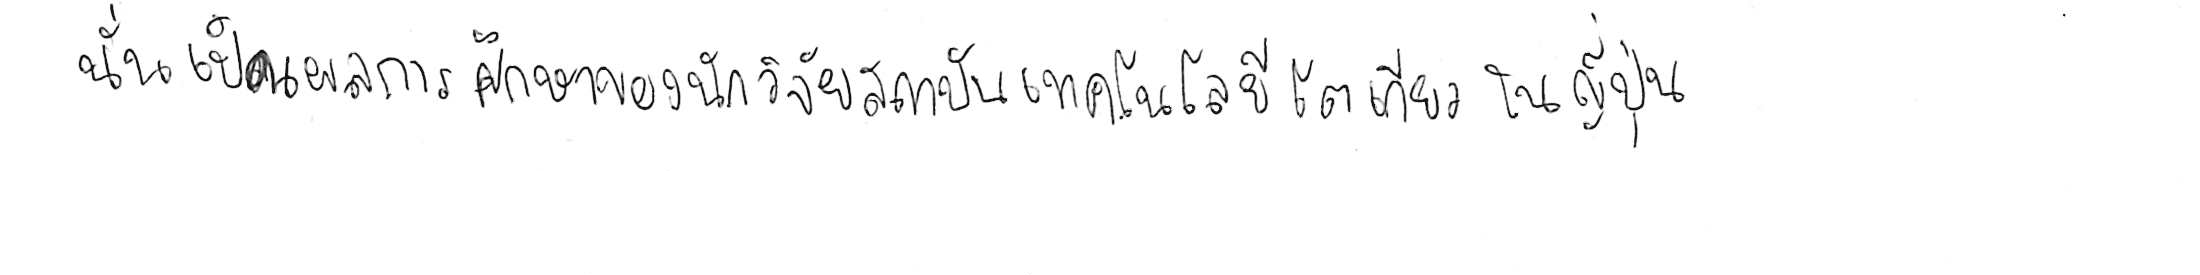 นั่นเป็นผลการศึกษาของนักวิจัยสถาบันเทคโนโลยีโตเกียวในญี่ปุ่น